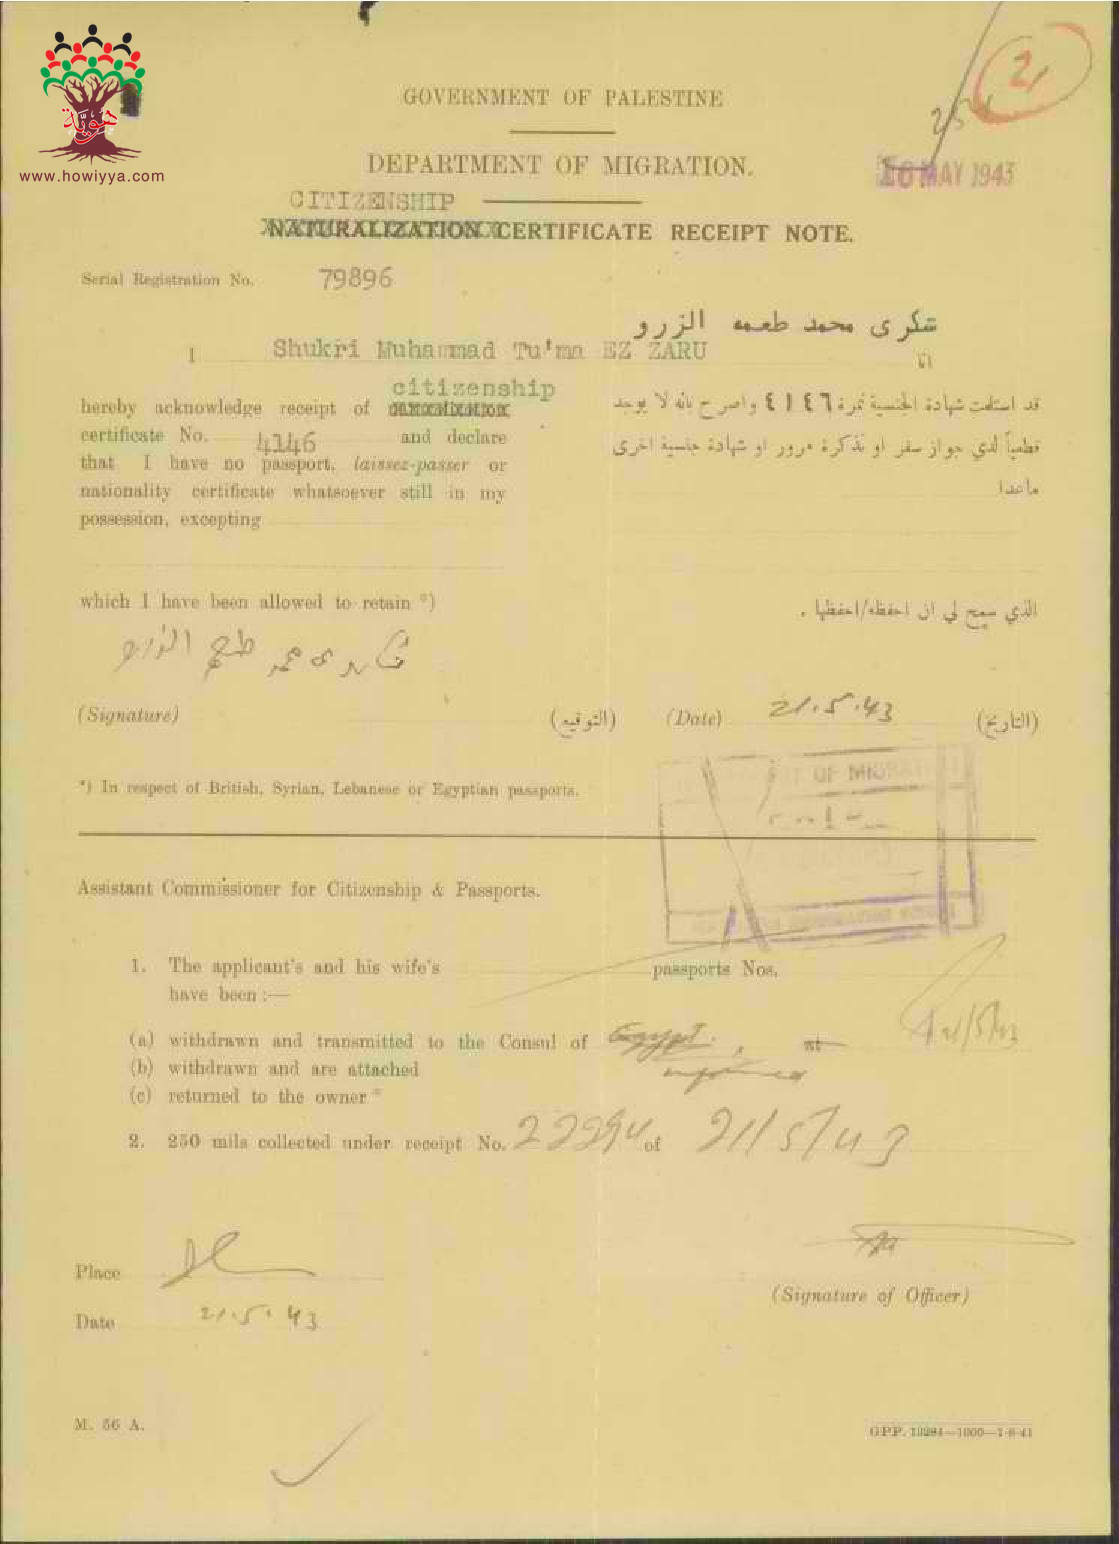 هويّة
www.howiyya.com
21
GOVERNMENT OF PALESTINE
DEPARTMENT OF MIGRATION.
MAY 1943
CITIZENSHIP
NATURALIZATION CERTIFICATE RECEIPT NOTE.
Serial Registration No. 79896
شكرى محمد طعمه الزرو
I Shukri Muhammad Tu'ma EZ ZARU انا
citizenship
hereby acknowledge receipt of
certificate No. 4146 and declare
that I have no passport, laissez-passer or
nationality certificate whatsoever still in my
possession, excepting
قد استلمت شهادة الجنسية نمرة ٤١٤٦ واصرح بانه لا يوجد
قطعياً لدي جواز سفر او تذكرة مرور او شهادة جنسية اخرى
ماعدا
which I have been allowed to retain *)
الذي سمح لي ان احفظه/احفظها .
شكرى محمد طعمه الزرو
(Signature) (التوقيع)
(Date) 21.5.43 (التاريخ)
*) In respect of British, Syrian, Lebanese or Egyptian passports.
OF MIGRATION
Assistant Commissioner for Citizenship & Passports.
1. The applicant's and his wife's passports Nos.
have been :—
(a) withdrawn and transmitted to the Consul of Egypt. at
(b) withdrawn and are attached
(c) returned to the owner *
21/5/43
2. 250 mils collected under receipt No. 22894 of 21/5/43
Place
(Signature of Officer)
Date 21.5.43
M. 56 A.
GPP. 13284—1000—1-8-41